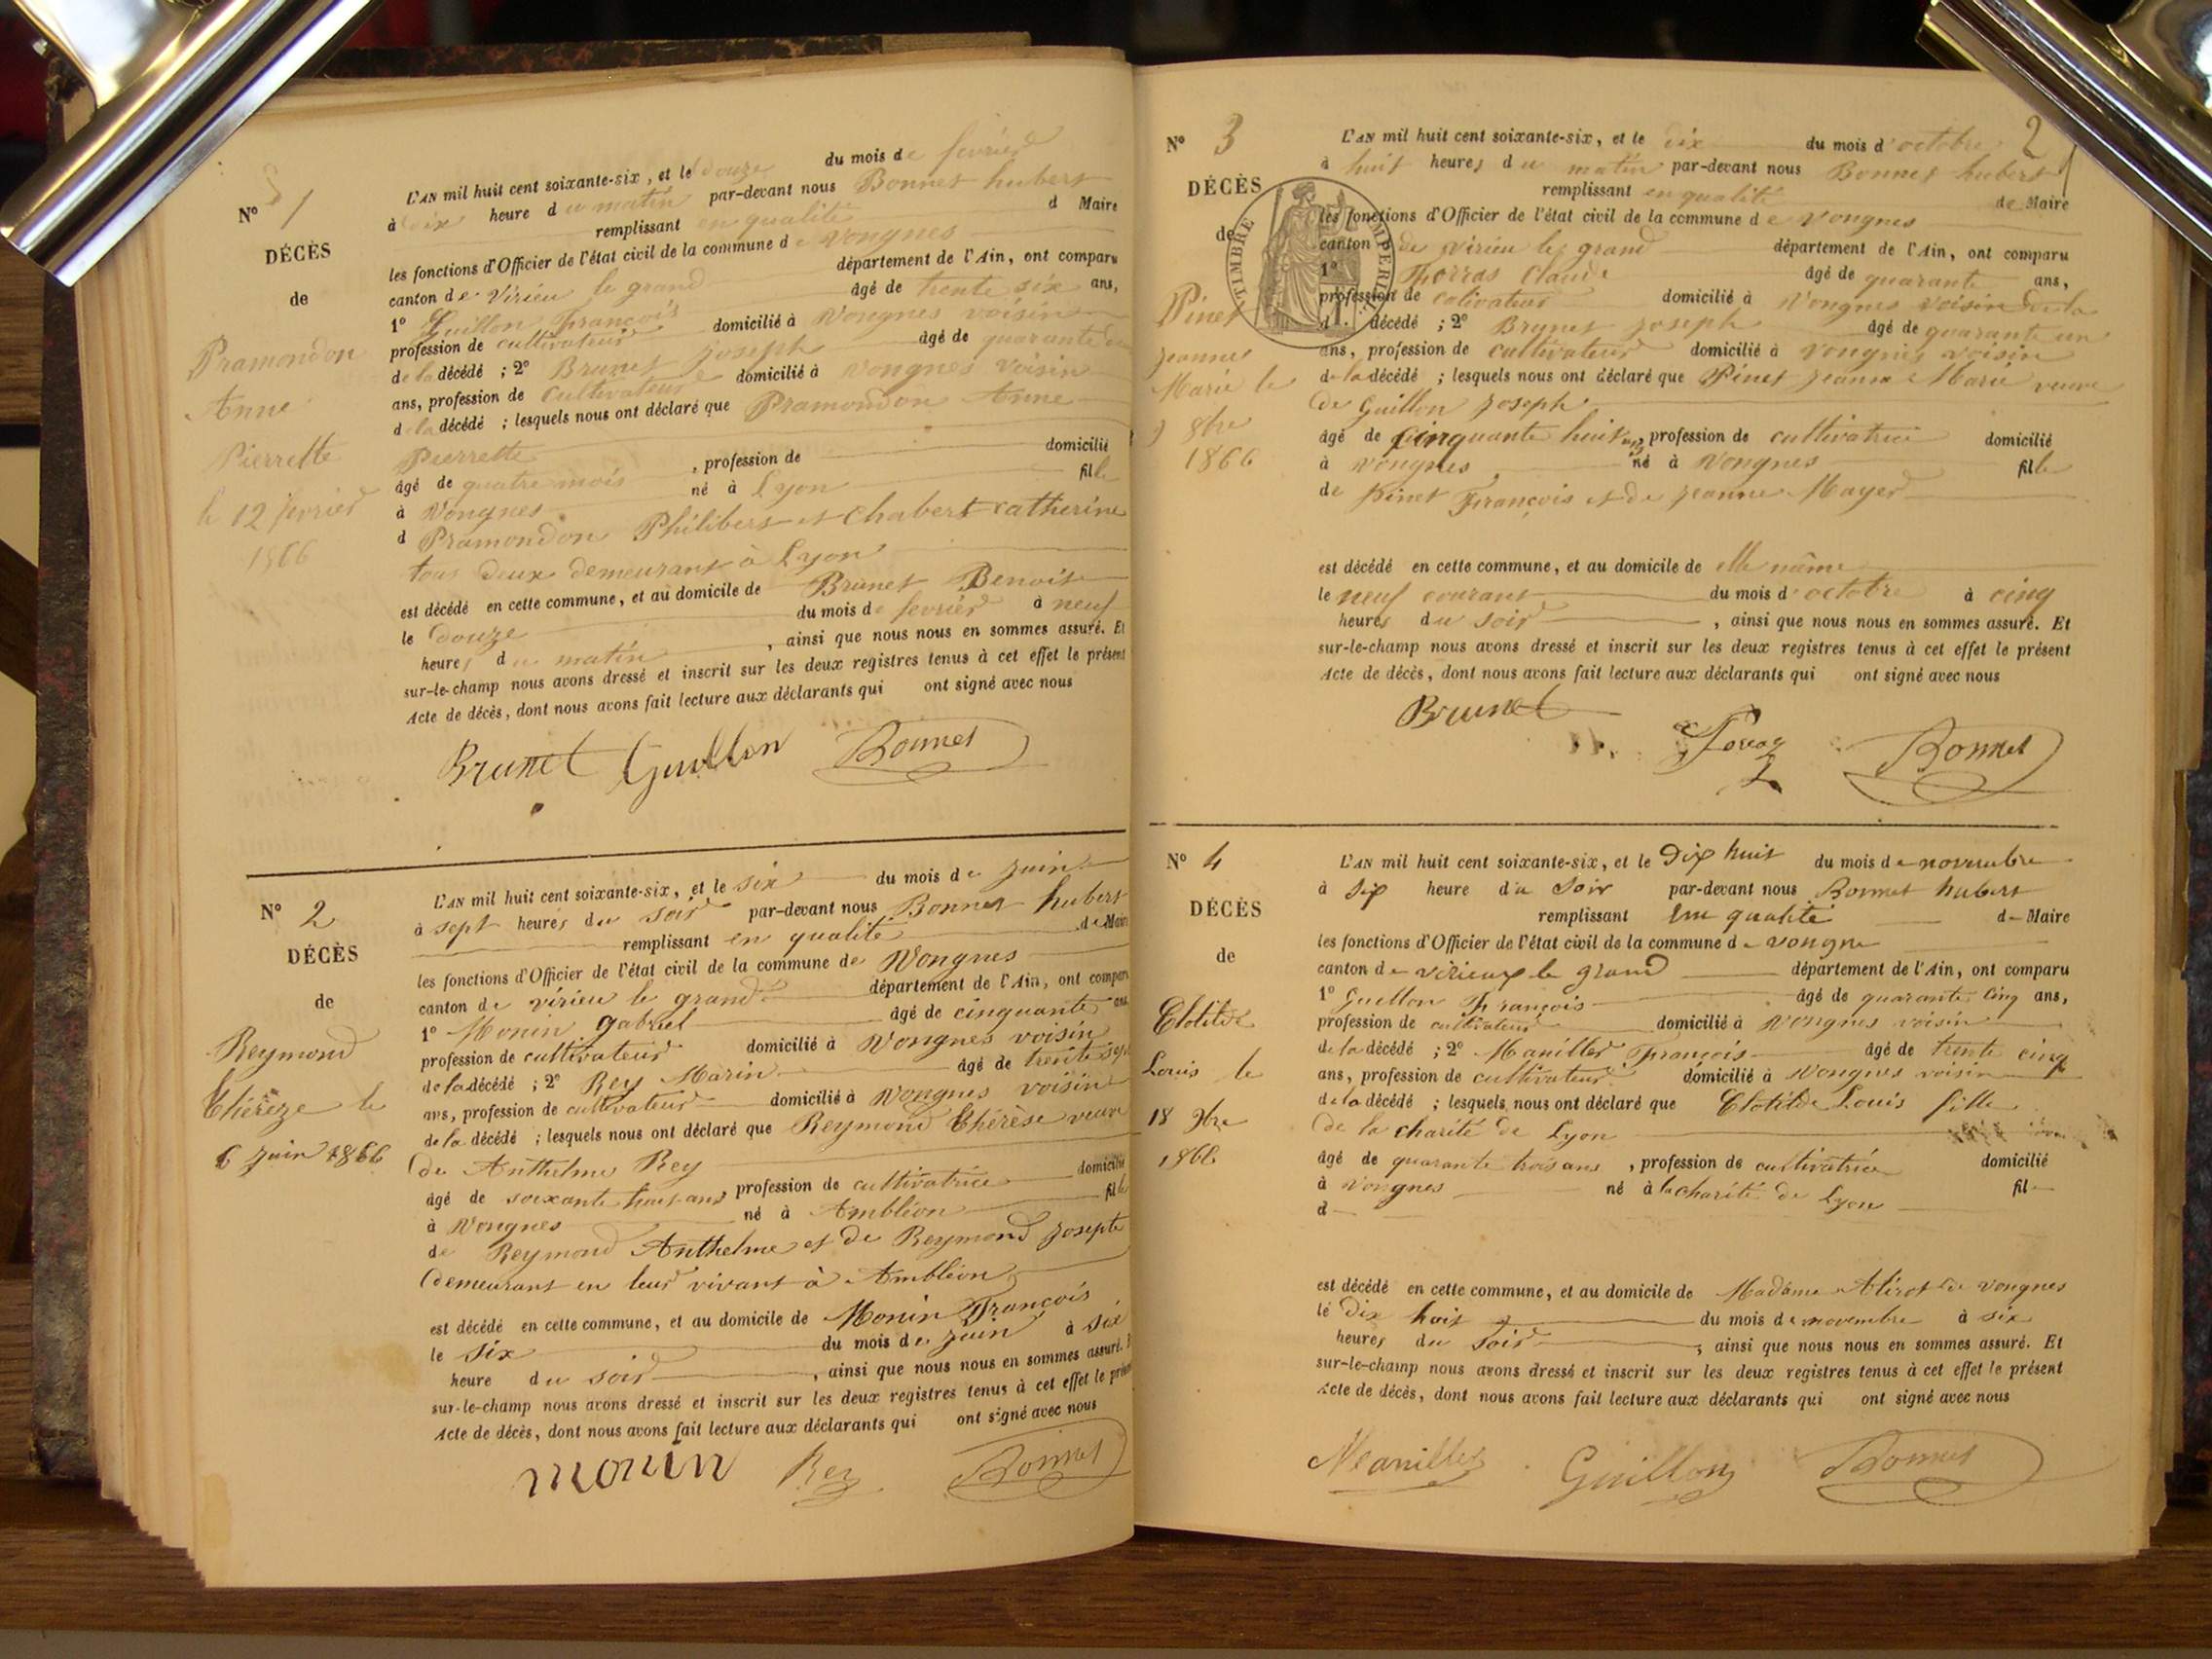 N° 1
DÉCÈS
de
Pramondon
Anne
Pierrette
le 12 fevrier
1866
L'AN mil huit cent soixante-six, et le douze du mois de fevrier
à dix heure du matin par-devant nous Bonnet hubert
remplissant en qualité d Maire
les fonctions d'Officier de l'état civil de la commune de Vongnes
canton de Virieu le grand département de l'Ain, ont comparu
1° Guillon François âgé de trente six ans,
profession de cultivateur domicilié à Vongnes voisin
de la décédé ; 2° Brunet Joseph âgé de quarante
ans, profession de Cultivateur domicilié à Vongnes voisin
d la décédé ; lesquels nous ont déclaré que Pramondon Anne
Pierrette
âgé de quatre mois , profession de domicilié
à Vongnes né à Lyon fille
d Pramondon Philibert et Chabert Catherine
tous deux demeurant à Lyon
est décédé en cette commune, et au domicile de Brunet Benoit
le douze du mois de fevrier à neuf
heures du matin , ainsi que nous nous en sommes assuré. Et
sur-le-champ nous avons dressé et inscrit sur les deux registres tenus à cet effet le présent
Acte de décès, dont nous avons fait lecture aux déclarants qui ont signé avec nous
Brunet Guillon Bonnet
N° 2
DÉCÈS
de
Reymond
Thérèze le
6 juin 1866
L'AN mil huit cent soixante-six, et le six du mois de juin
à sept heures du soir par-devant nous Bonnet hubert
remplissant en qualité de Maire
les fonctions d'Officier de l'état civil de la commune de Vongnes
canton de virieu le grand département de l'Ain, ont comparu
1° Monin gabriel âgé de cinquante ans
profession de cultivateur domicilié à Vongnes voisin
de la décédé ; 2° Rey Marin âgé de trente sept
ans, profession de cultivateur domicilié à Vongnes voisin
de la décédé ; lesquels nous ont déclaré que Reymond Thérèse veuve
de Anthelme Rey
âgé de soixante huit ans profession de cultivatrice domicilié
à Vongnes né à Ambléon fille
de Reymond Anthelme et de Reymond Josepte
demeurant en leur vivant à Ambléon
est décédé en cette commune, et au domicile de Monin François
le six du mois de juin à six
heure du soir , ainsi que nous nous en sommes assuré. E
sur-le-champ nous avons dressé et inscrit sur les deux registres tenus à cet effet le présen
Acte de décès, dont nous avons fait lecture aux déclarants qui ont signé avec nous
monin Rey Bonnet
2
N° 3
DÉCÈS
de
TIMBRE IMPERIAL
Pinet
jeanne
Marie le
9 8bre
1866
L'AN mil huit cent soixante-six, et le dix du mois d'octobre
à huit heures du matin par-devant nous Bonnet hubert
remplissant en qualité de Maire
les fonctions d'Officier de l'état civil de la commune de Vongnes
canton de virieu le grand département de l'Ain, ont comparu
1° Thorras Claude âgé de quarante ans,
profession de cultivateur domicilié à Vongnes voisin de la
d décédé ; 2° Brunet Joseph âgé de quarante un
ans, profession de cultivateur domicilié à Vongnes voisin
de la décédé ; lesquels nous ont déclaré que Pinet Jeanne Marie veuve
de Guillon Joseph
âgé de Cinquante huit ans, profession de cultivatrice domicilié
à Vongnes né à Vongnes fille
de Pinet François et de jeanne Mayer
est décédé en cette commune, et au domicile de elle même
le neuf courant du mois d'octobre à cinq
heures du soir , ainsi que nous nous en sommes assuré. Et
sur-le-champ nous avons dressé et inscrit sur les deux registres tenus à cet effet le présent
Acte de décès, dont nous avons fait lecture aux déclarants qui ont signé avec nous
Brunet Bonnet
N° 4
DÉCÈS
de
Clotilde
Louis le
18 9bre
1866
L'AN mil huit cent soixante-six, et le Dix huit du mois de novembre
à six heure du Soir par-devant nous Bonnet hubert
remplissant en qualité de Maire
les fonctions d'Officier de l'état civil de la commune de vongne
canton de virieux le grand département de l'Ain, ont comparu
1° Guillon François âgé de quarante cinq ans,
profession de cultivateur domicilié à Vongnes voisin
de la décédé ; 2° Manillier François âgé de trente cinq
ans, profession de cultivateur domicilié à Vongnes voisin
de la décédé ; lesquels nous ont déclaré que Clotilde Louis fille
de la charité de Lyon
âgé de quarante trois ans , profession de cultivatrice domicilié
à Vongnes né à la charité de Lyon fil
d
est décédé en cette commune, et au domicile de Madame de Vongnes
le Dix huit du mois de novembre à six
heures du Soir , ainsi que nous nous en sommes assuré. Et
sur-le-champ nous avons dressé et inscrit sur les deux registres tenus à cet effet le présent
Acte de décès, dont nous avons fait lecture aux déclarants qui ont signé avec nous
Manillier Guillon Bonnet